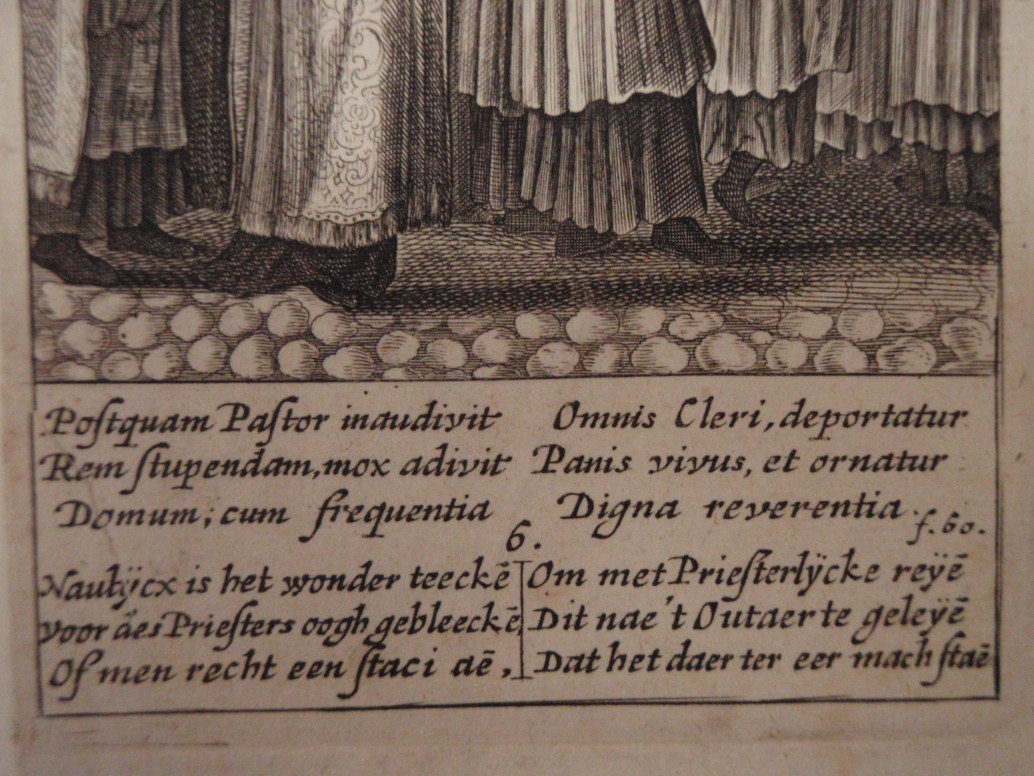 Poſtquam Paſtor inaudivit
Rem ſtupendam, mox adivit
Domum; cum frequentia
Omnis Cleri, deportatur
Panis vivus, et ornatur
Digna reverentia. f. 60.
6.
Naulÿcx is het wonder teeckē
voor des Prieſters oogh gebleeckē,
Of men recht een ſtaci aē,
Om met Prieſterlÿcke reÿē
Dit nae't Outaer te geleÿē
Dat het daer ter eer mach ſtaē